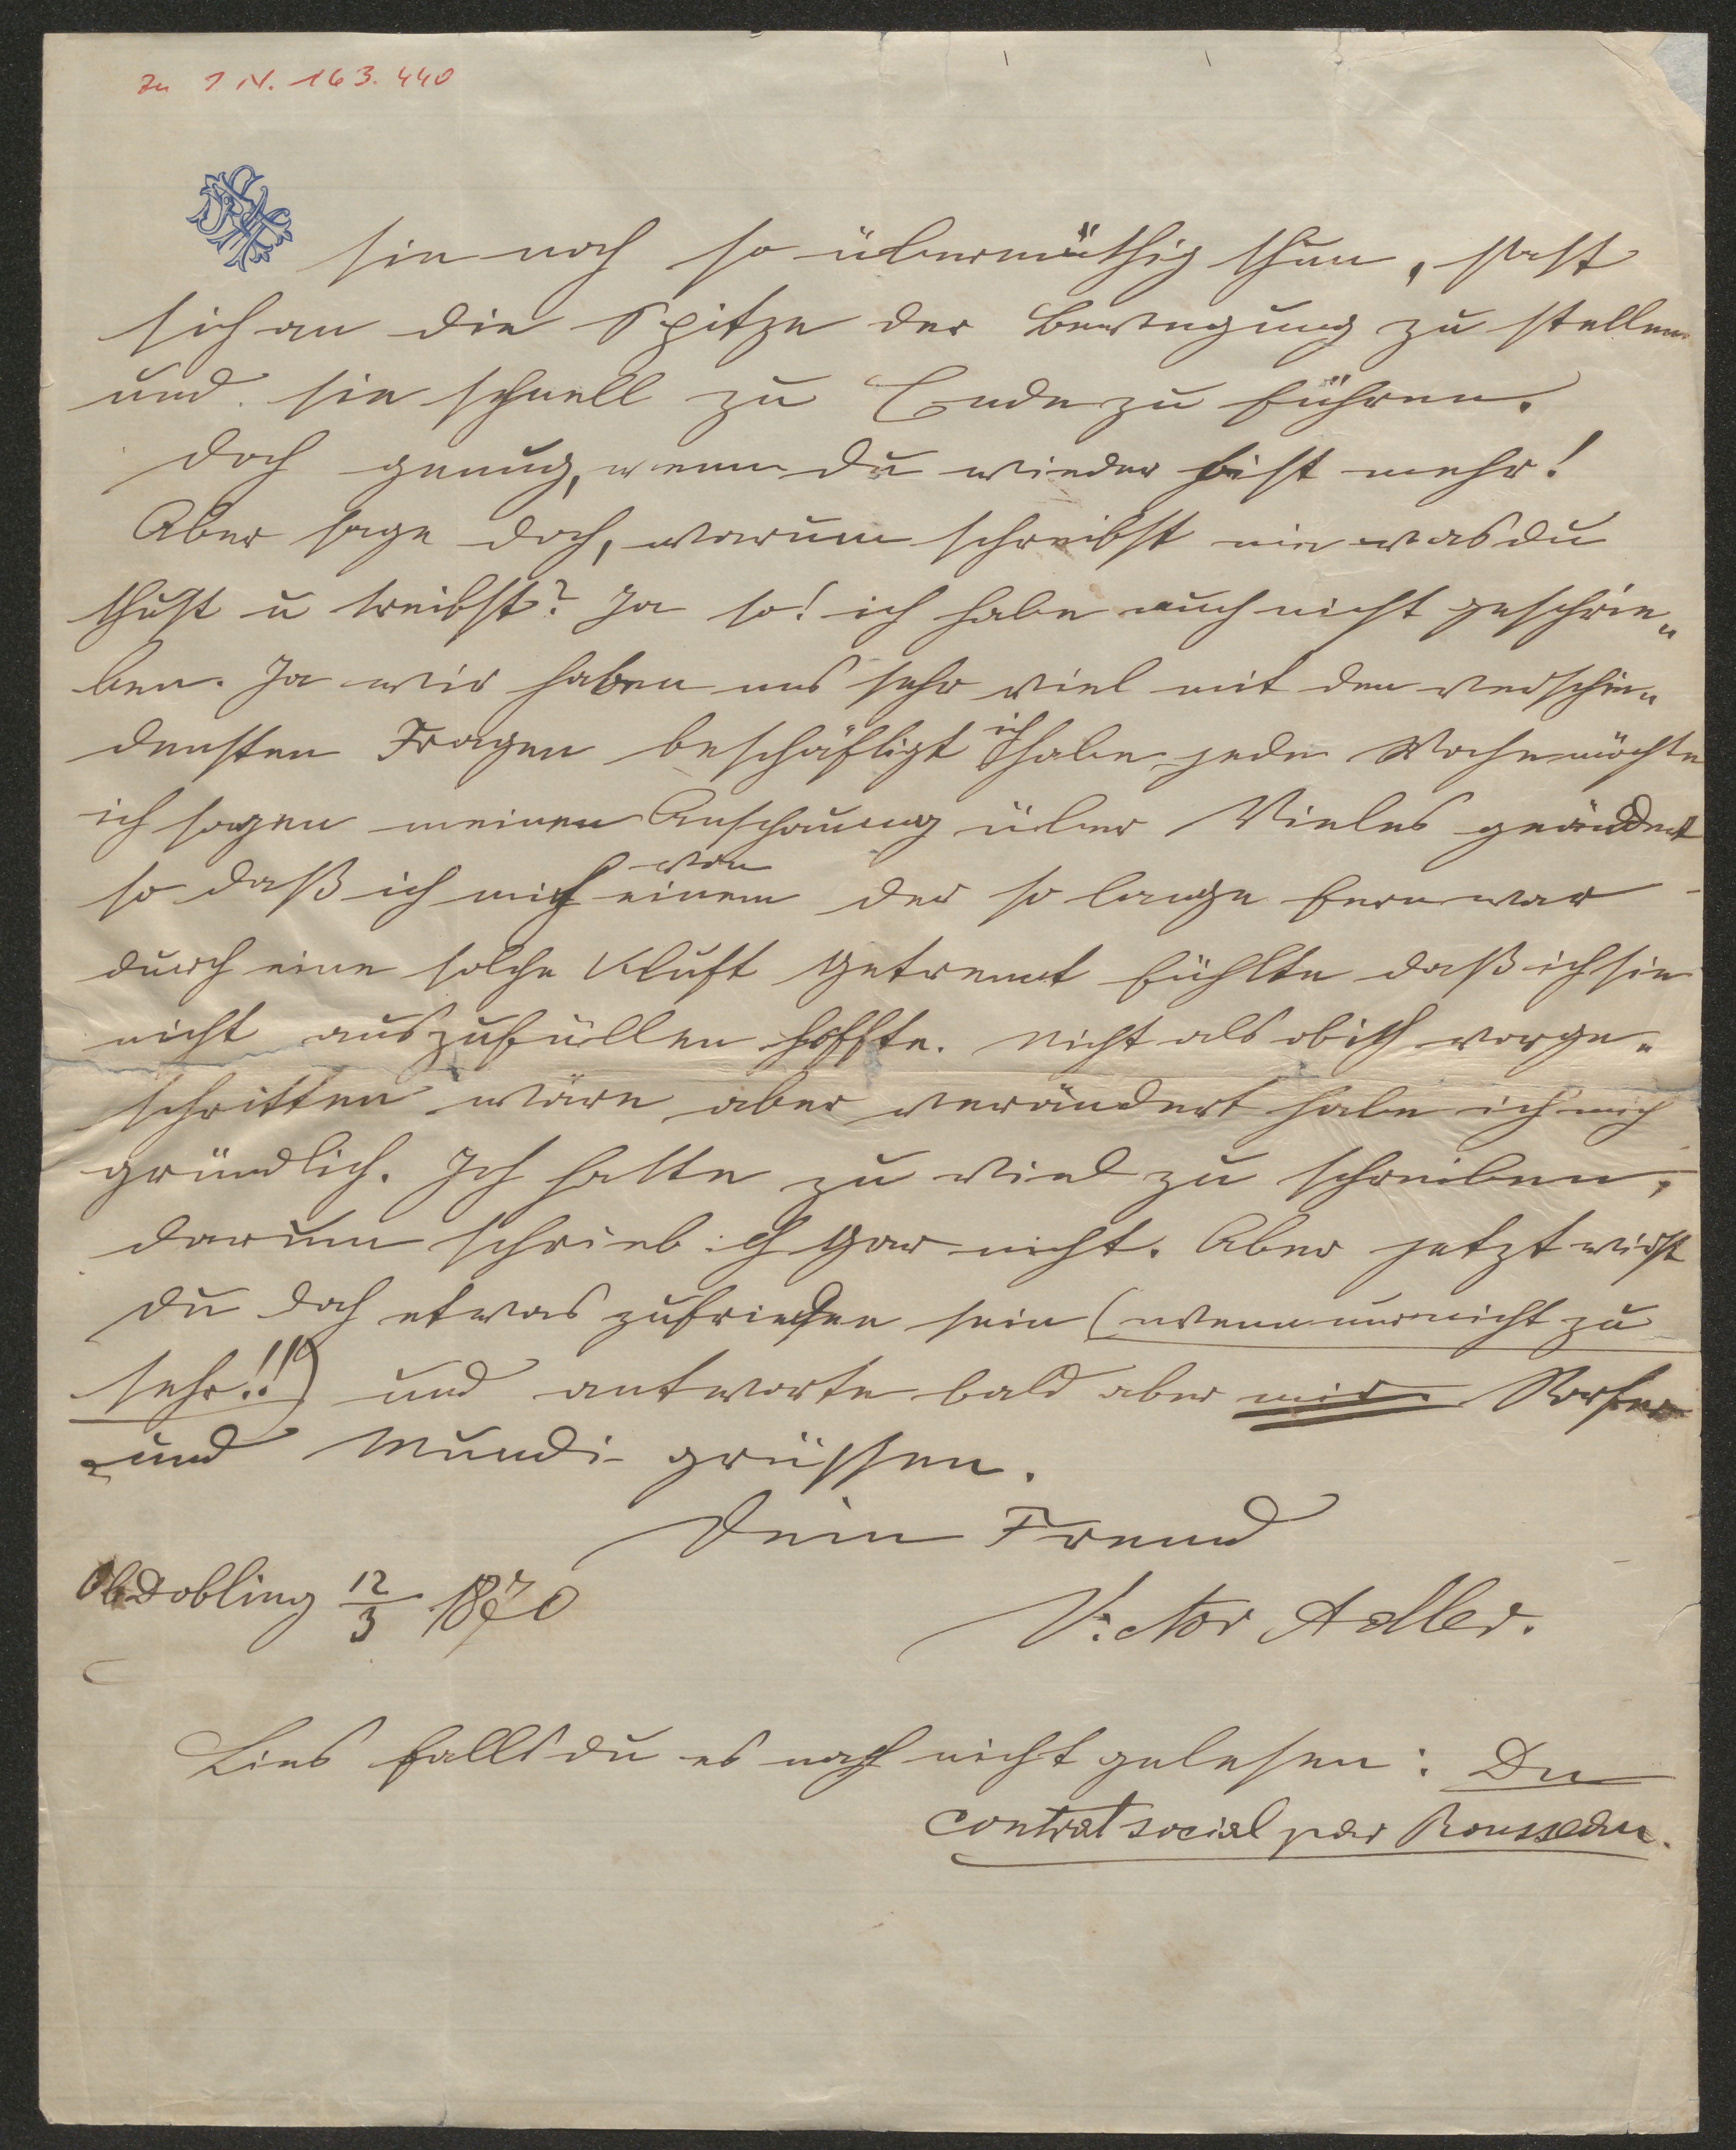 Zu I. N. 163.440
sie noch so übermüthig thun, statt
sich an die Spitze der Bewegung zu stellen
und sie schnell zu Ende zu führen.
Doch genug, wenn du wieder hist mehr!
Aber sage doch, warum schreibst nie was du
thust u treibst? Ja so! ich habe auch nicht geschrie„
ben. Ja wir haben uns sehr viel mit den verschie„
densten Fragen beschäftigt ich habe jede Woche möchte
ich sagen meinen Anschauung über Vieles geändert
so daß ich mich von einem der so lange fern war
durch eine solche Kluft getrennt fühlte daß ich sie
nicht auszufüllen hoffte. Nicht als ob ich vorge„
schritten wäre aber verändert habe ich mich
gründlich. Ich hatte zu viel zu schreiben,
darum schrieb ich gar nicht. Aber jetzt wirst
du doch etwas zufrieden sein (wenn nur nicht zu
sehr!!) und antworte bald aber mir.
und Mundi grüssen.
Dein Freund
Ob Döbling 12/3 1870
Victor Adler.
Lies falls du es noch nicht gelesen: Du
contrat social par Rousseau.